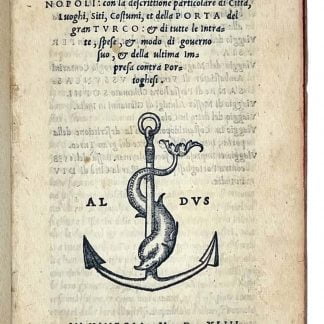 NOPOLI: con la descrittione particolare di Città,
Luoghi, Siti, Costumi, et della PORTA del
gran TVRCO: & di tutte le intra-
te, spese, & modo di governo
suo, & della ultima Im-
presa contra Por-
toghesi.
AL DVS
M. D. XLIII